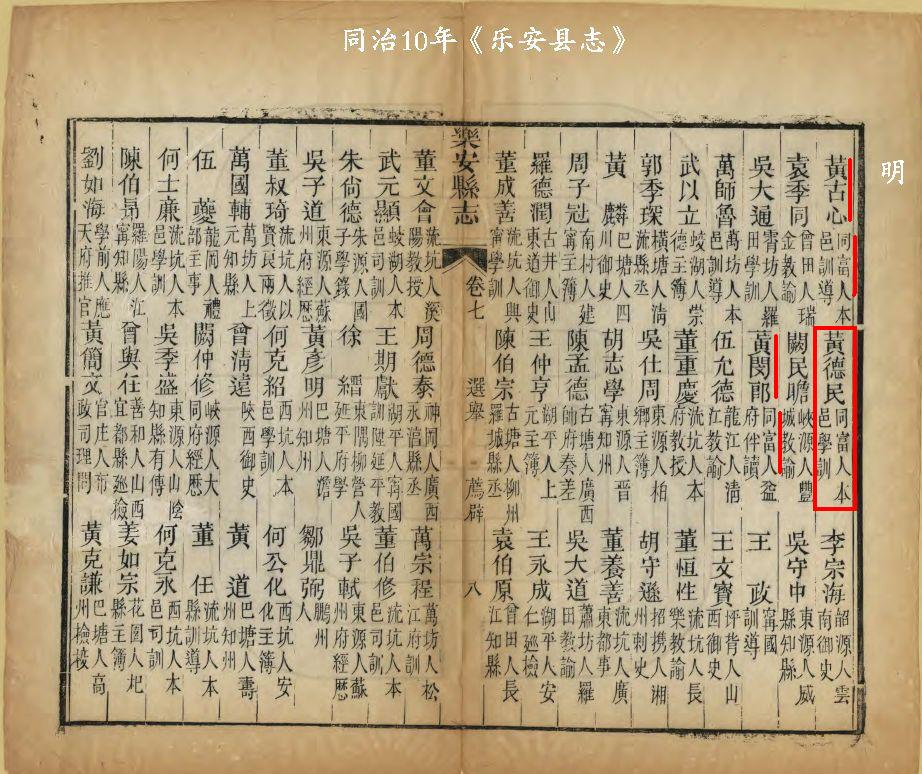 同治10年《乐安县志》
明
黃古心 同富人本邑訓導 黃德民 同富人本邑學訓 李宗海 韶源人雲南御史
袁季同 曾田人瑞金教諭 闕民瞻 峽源人豐城教諭 吳守中 東源人威縣知縣
吳大通 霄坊人羅田學訓 黃閔郎 同富人益府伴讀 王政 寧國訓導
萬師魯 萬坊人本邑訓導 伍允德 龍江人清江教諭 王文寶 坪背人山西御史
武以立 蛟湖人崇德主簿 董重慶 流坑人本府教授 董恒性 流坑人長樂教諭
郭季琛 橫塘人清流縣丞 吳仕周 東源人柏鄉主簿 胡守遜 招携人湘州刺史
黃麟 巴塘人四川御史 胡志學 東源人晋寧知州 董養善 流坑人廣東都事
周子冠 南村人建寧主簿 陳孟德 古塘人廣西帥府奏差 吳大道 蕭坊人羅田教諭
羅德潤 古井人山東道御史 王仲亨 湖平人上元主簿 王永成 湖平人安仁巡檢
董成善 流坑人興甯學訓 陳伯宗 古塘人柳州羅城縣丞 袁伯原 曾田人長江知縣
樂安縣志 卷七 選舉 薦辟 八
董文會 流坑人溪陽教授 周德泰 神岡人廣西永縣丞 萬宗程 萬坊人松江府訓
武元顯 蛟湖人本邑司訓 王期獻 湖平人甯國訓陞延平教 董伯修 流坑人本邑司訓
朱尙德 朱源人國子學錄 徐 東隅柳營人延平府學 吳子軾 東源人蘇州府經歷
吳子道 東源人蘇州府經歷 黃彥明 巴塘人澹州知州 鄒鼎弼 人鵬州
董叔琦 流坑人以賢良兩徵 何克紹 西坑人本邑學訓 何公化 西坑人安化主簿
萬國輔 萬坊人上元知縣 曾清遠 陝西御史 黃道 巴塘人壽州知州
伍夔 龍岡人禮部主事 闕仲修 峽源人大同府經歷 董任 流坑人本縣訓導
何士廉 流坑人本邑學訓 吳季盛 東源人山陰知縣有傳 何克永 西坑人本邑司訓
陳伯昻 羅陽人江寧知縣 曾與任 善和人山西宜都縣巡檢 姜如宗 花園人杞縣主簿
劉如海 學前人應天府推官 黃簡文 官庄人布政司理問 黃克謙 巴塘人高州檢校